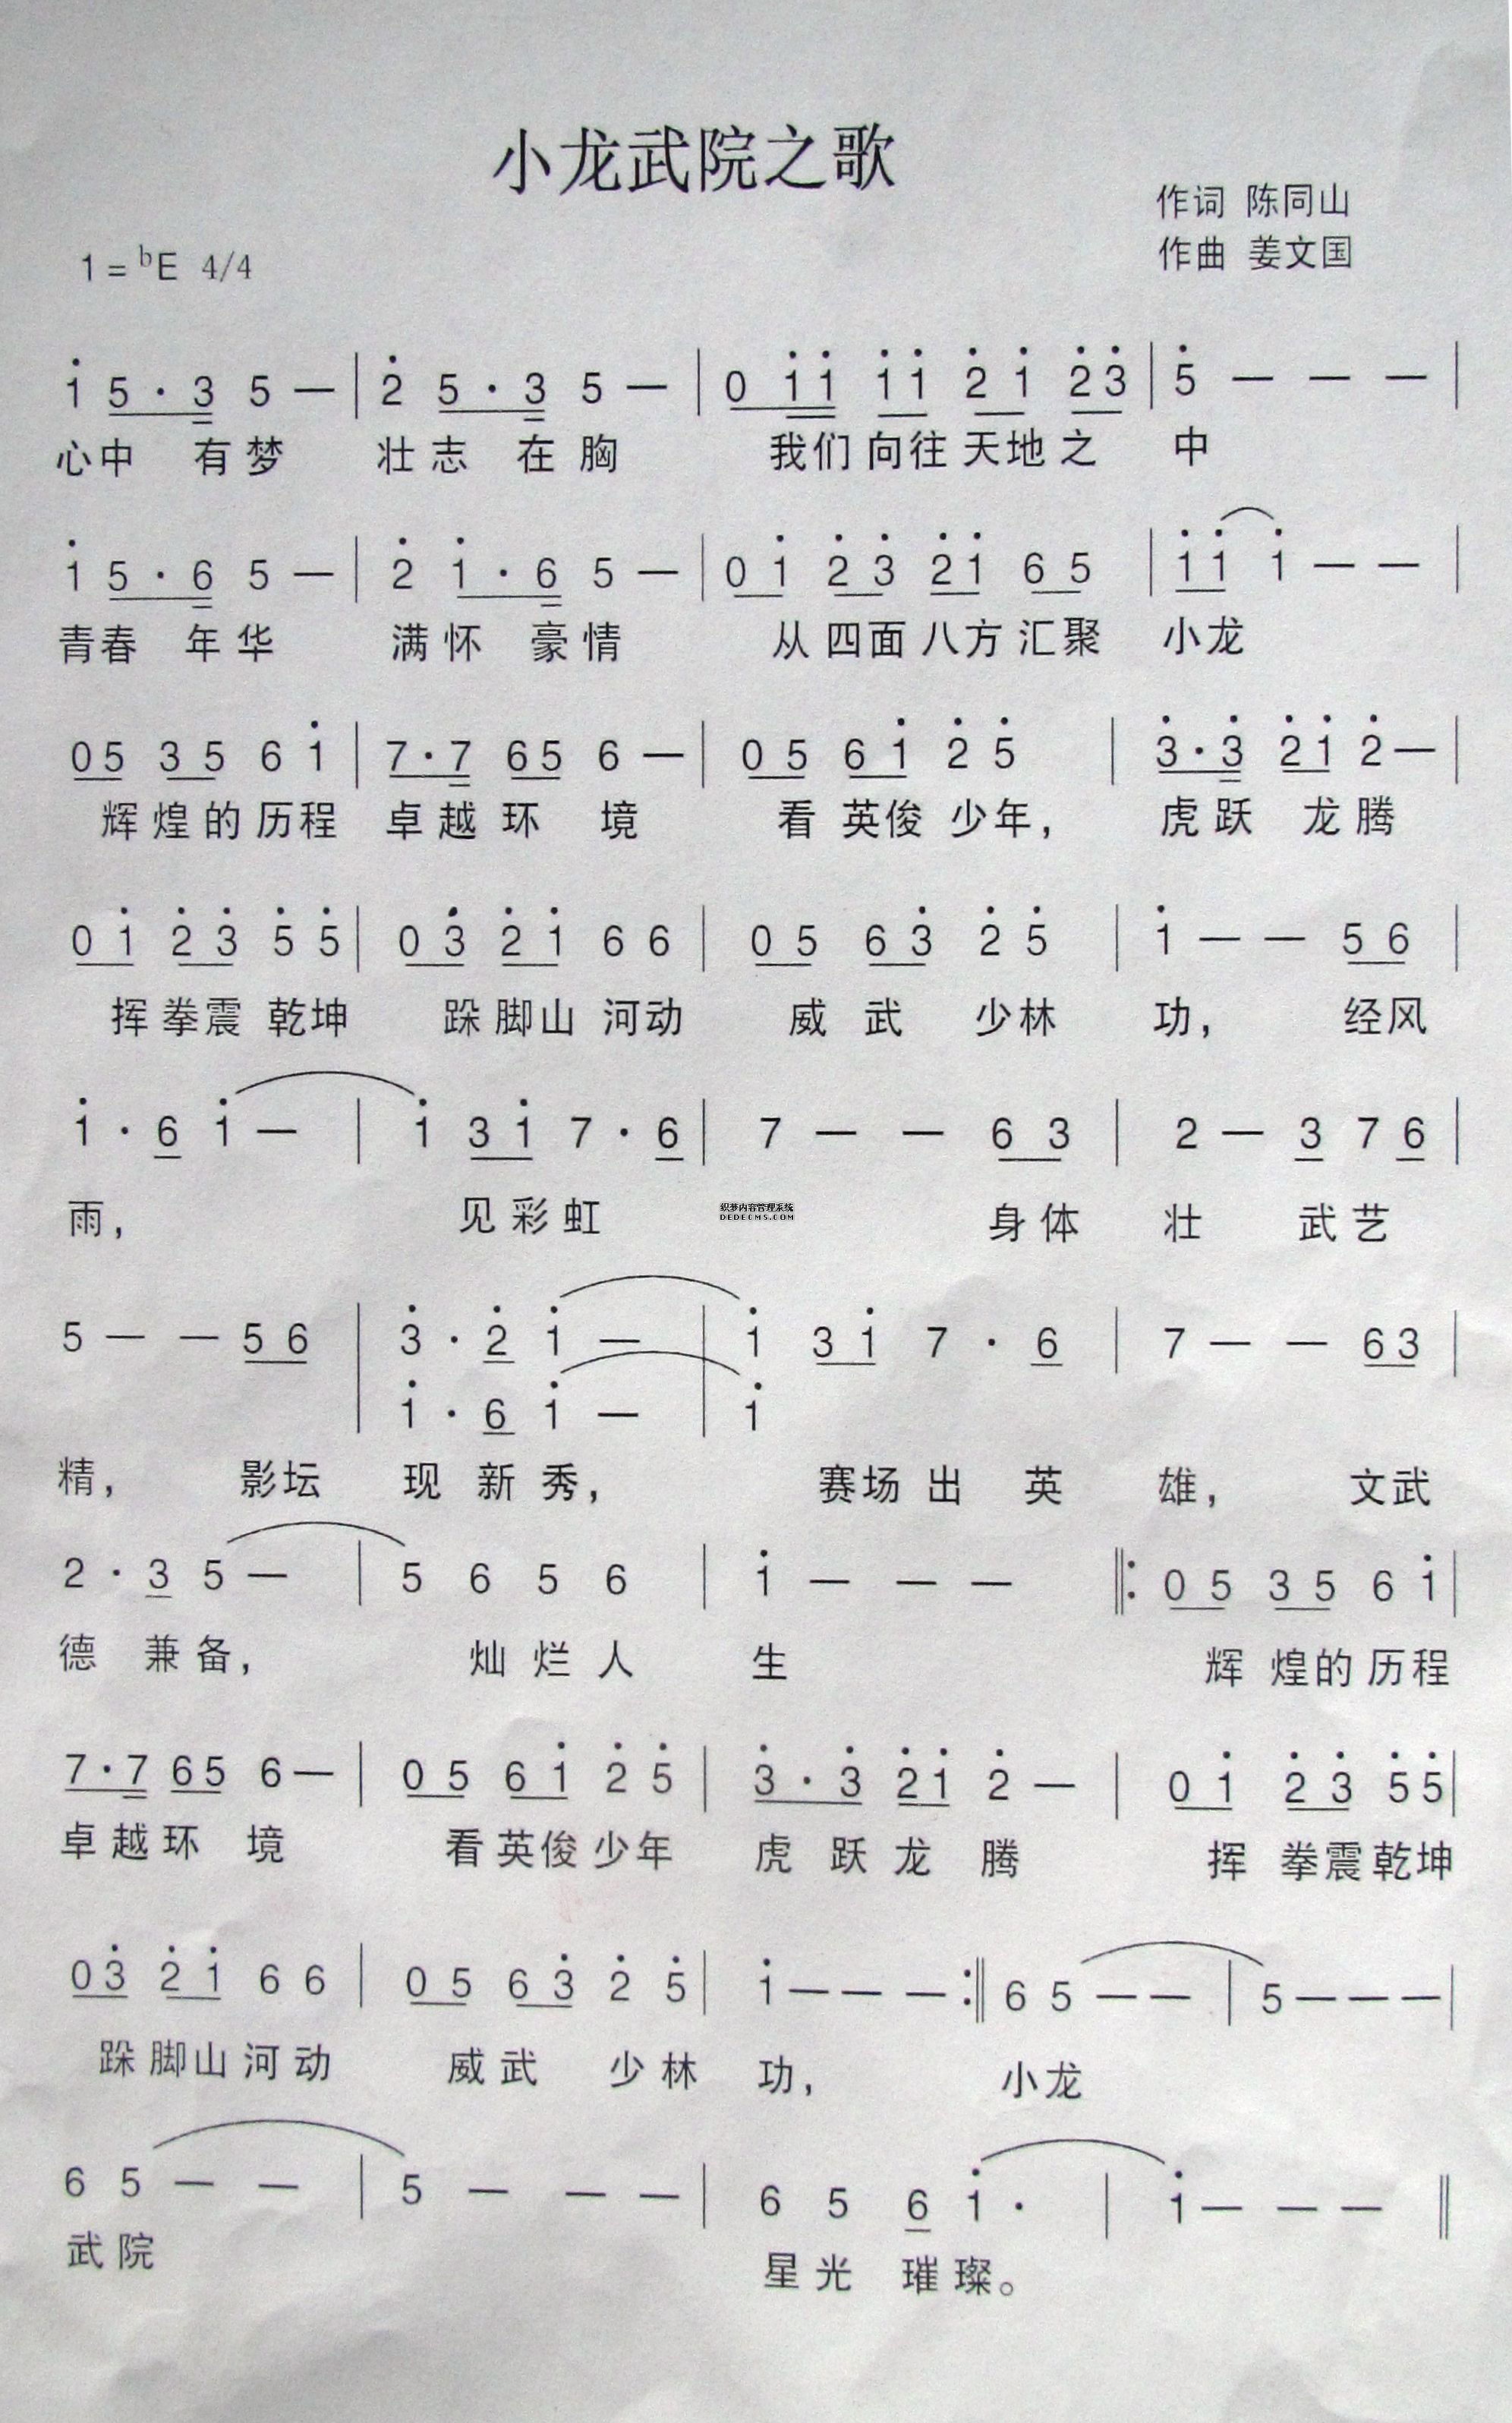 小龙武院之歌
作词 陈同山
1=ᵇE 4/4
作曲 姜文国
i 5 · 3 5 — | 2̇ 5 · 3 5 — | 0 i i i i 2̇ i 2̇ 3̇ | 5̇ — — — |
心中 有梦 壮志 在胸 我们向往天地之 中
i 5 · 6 5 — | 2̇ i · 6 5 — | 0 i 2̇ 3̇ 2̇ i 6 5 | i i i — — |
青春 年华 满怀 豪情 从四面八方汇聚 小龙
0 5 3 5 6 i | 7 · 7 6 5 6 — | 0 5 6 i 2̇ 5̇ | 3̇ · 3̇ 2̇ i 2̇ — |
辉煌的历程 卓越环 境 看英俊少年, 虎跃 龙腾
0 i 2̇ 3̇ 5̇ 5̇ | 0 3̇ 2̇ i 6 6 | 0 5 6 3̇ 2̇ 5̇ | i — — 5 6 |
挥拳震乾坤 跺脚山河动 威武 少林 功, 经风
i · 6 i — | i 3 i 7 · 6 | 7 — — 6 3 | 2 — 3 7 6 |
雨, 见彩虹 身体 壮 武艺
织梦内容管理系统
DEDECMS.COM
5 — — 5 6 | 3̇ · 2̇ i — | i 3 i 7 · 6 | 7 — — 6 3 |
i · 6 i — | i
精, 影坛 现新秀, 赛场出 英 雄, 文武
2 · 3 5 — | 5 6 5 6 | i — — — ‖: 0 5 3 5 6 i |
德 兼备, 灿烂人 生 辉煌的历程
7 · 7 6 5 6 — | 0 5 6 i 2̇ 5̇ | 3̇ · 3̇ 2̇ i 2̇ — | 0 i 2̇ 3̇ 5̇ 5̇ |
卓越环 境 看英俊少年 虎跃龙 腾 挥拳震乾坤
0 3̇ 2̇ i 6 6 | 0 5 6 3̇ 2̇ 5̇ | i — — — :‖ 6 5 — — | 5 — — — |
跺脚山河动 威武 少林 功, 小龙
6 5 — — | 5 — — — | 6 5 6 i · | i — — — ‖
武院 星光 璀璨。